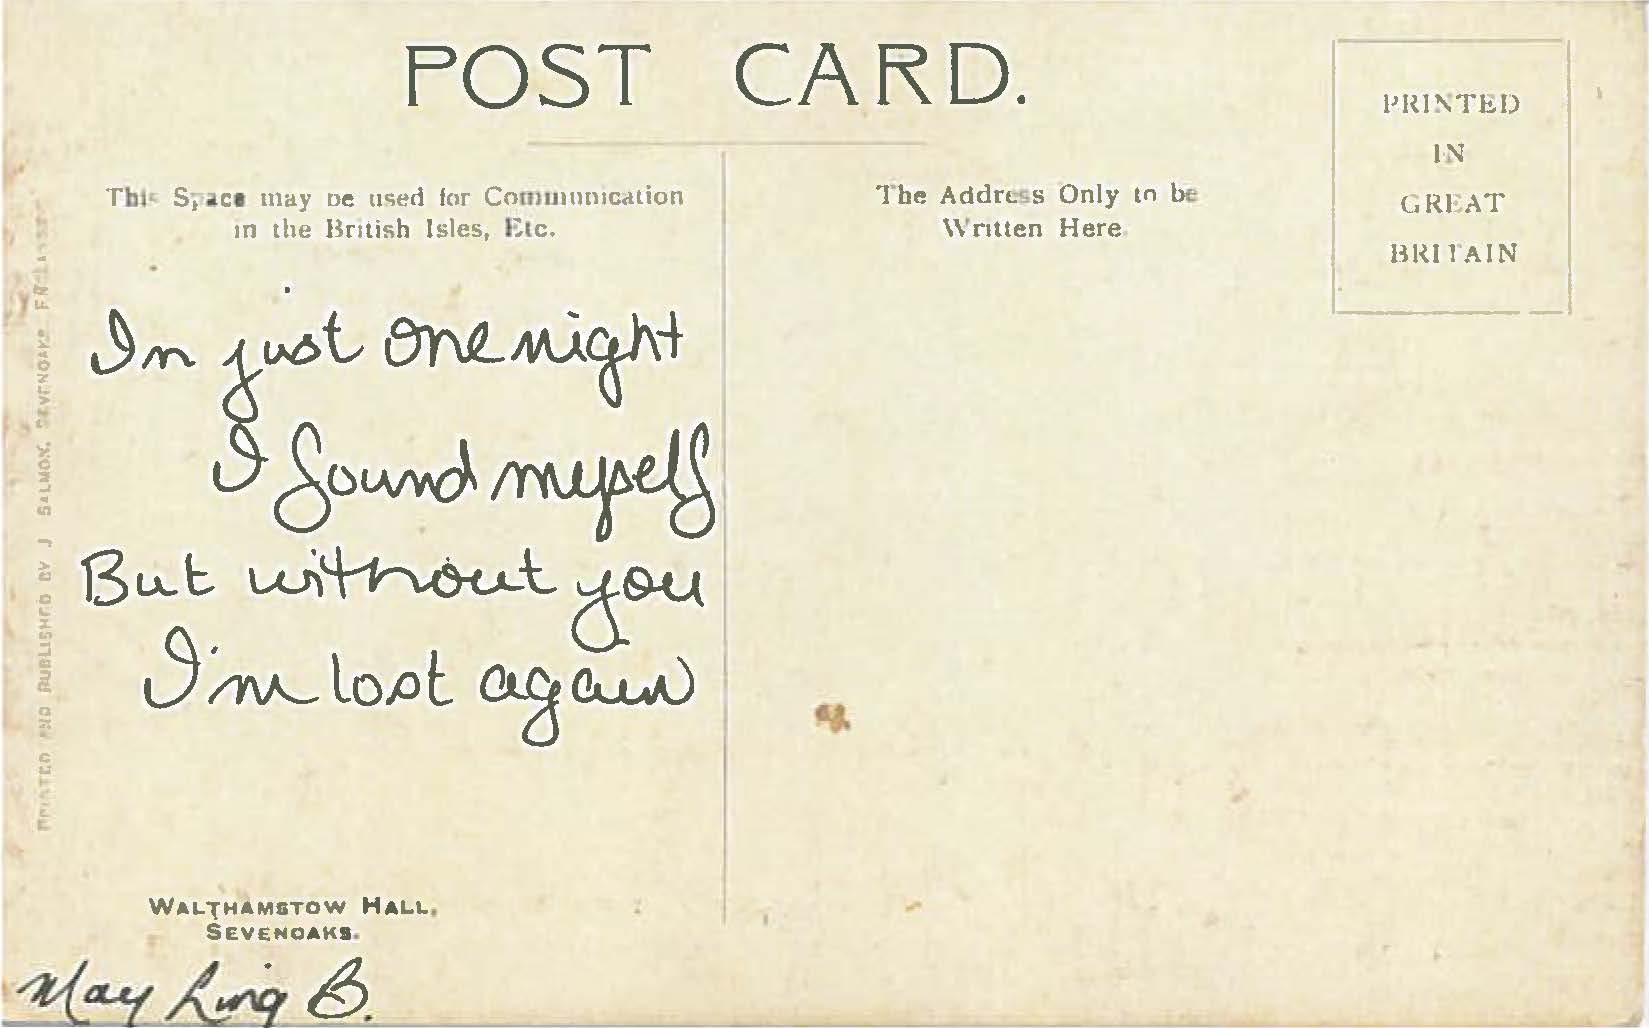 POST CARD.
This Space may be used for Communication
in the British Isles, Etc.
The Address Only to be
Written Here.
PRINTED
IN
GREAT
BRITAIN
PRINTED AND PUBLISHED BY J SALMON, SEVENOAKS, ENGLAND
In just one night
I found myself
But without you
I'm lost again
WALTHAMSTOW HALL,
SEVENOAKS.
May Ling B.